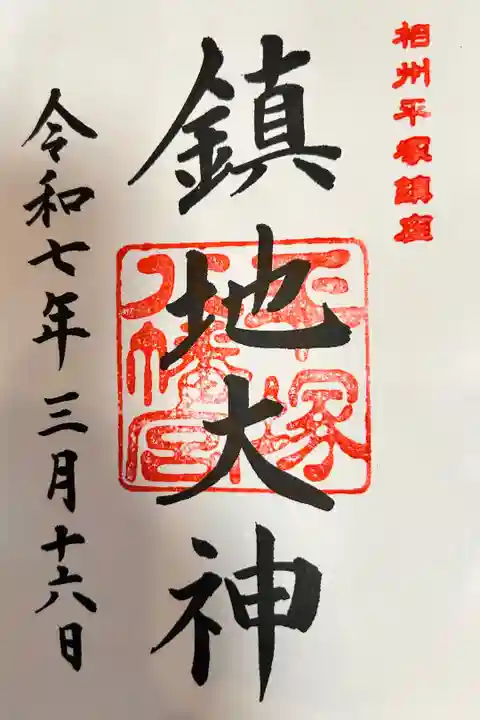 相州平塚鎮座
鎮地大神
平塚
八幡宮
令和七年三月十六日